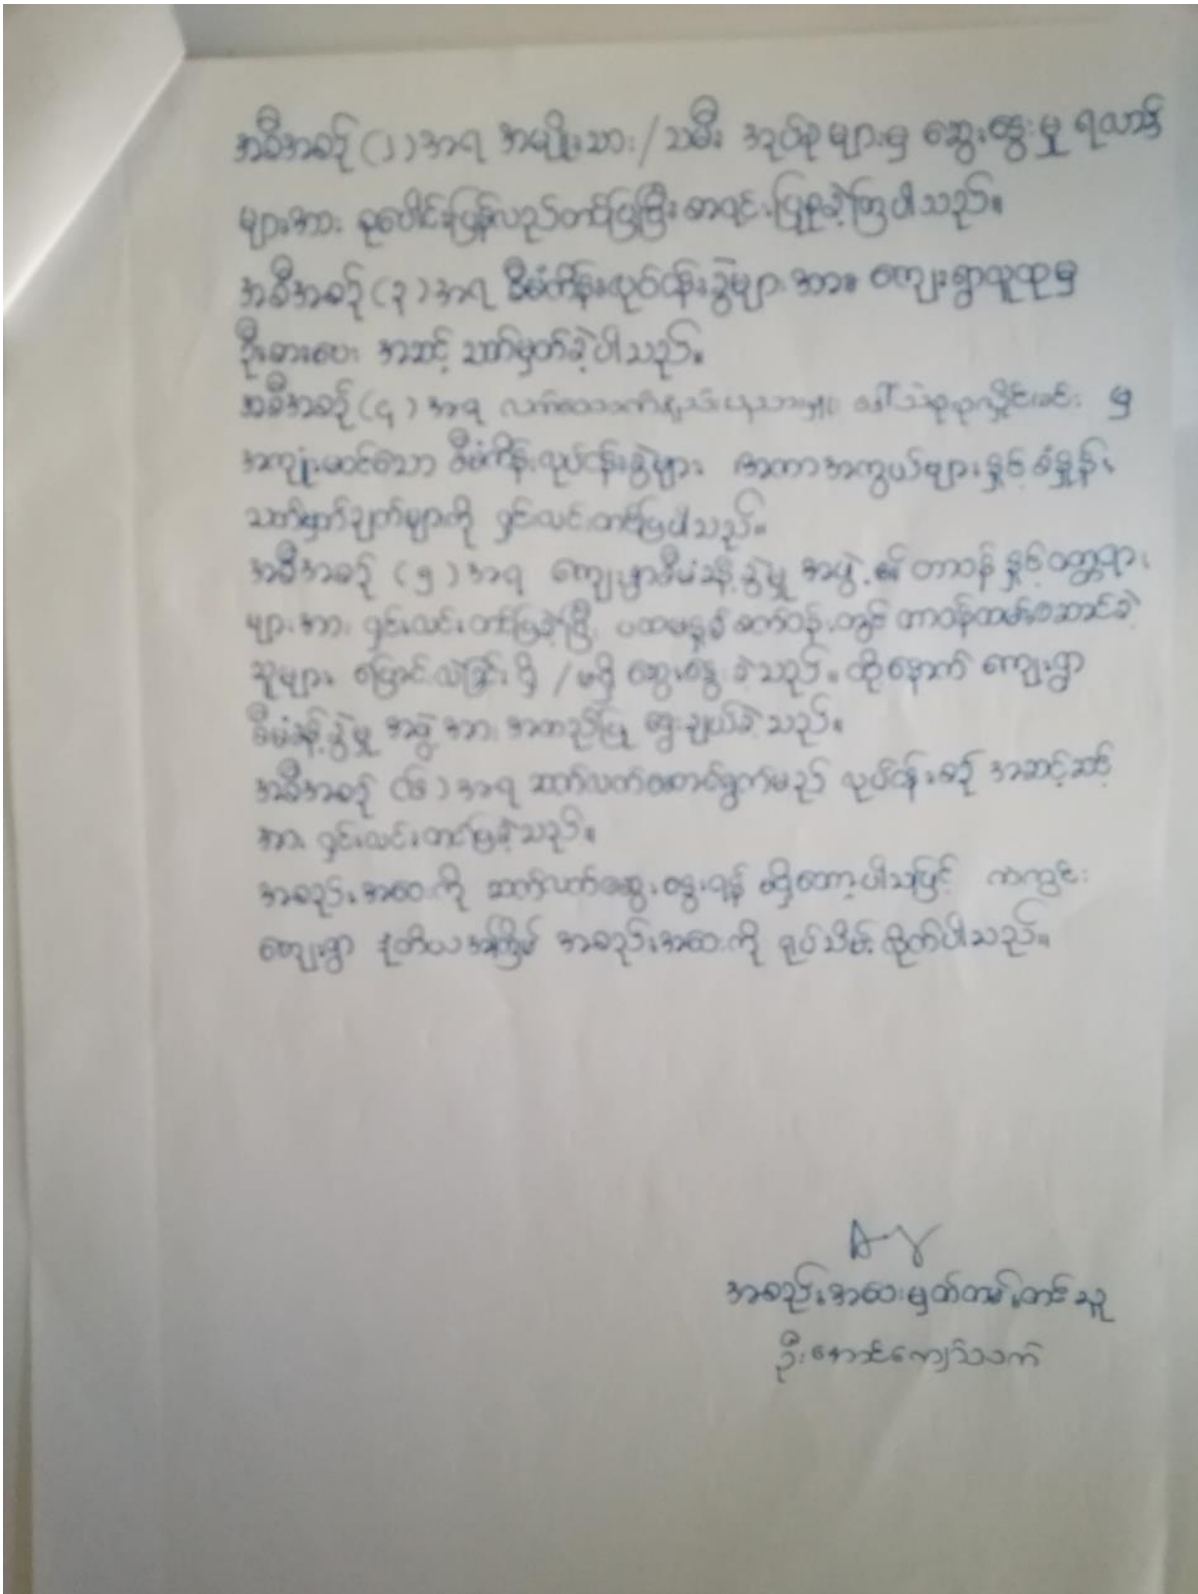 အစီအစဉ် (၂) အရ အမျိုးသား/သမီး အုပ်စုများမှ ဆွေးနွေးမှု ရလာဒ်
များအား စုပေါင်းပြန်လည်တင်ပြပြီး စာရင်းပြုစုခဲ့ကြပါသည်။
အစီအစဉ် (၃) အရ စီမံကိန်းလုပ်ငန်းခွဲများအား ကျေးရွာလူထုမှ
ဦးစားပေး အဆင့် သတ်မှတ်ခဲ့ပါသည်။
အစီအစဉ် (၄) အရ မှ
အကျုံးမဝင်သော စီမံကိန်းလုပ်ငန်းခွဲများ အကာအကွယ်များနှင့် စံနှုန်း
သတ်မှတ်ချက်များကို ရှင်းလင်းတင်ပြပါသည်။
အစီအစဉ် (၅) အရ ကျေးရွာစီမံခန့်ခွဲမှု အဖွဲ့၏ တာဝန် နှင့် ဝတ္တရား
များအား ရှင်းလင်းတင်ပြခဲ့ပြီး ပထမနှစ် စက်ဝန်းတွင် တာဝန်ထမ်းဆောင်ခဲ့
သူများ ပြောင်းလဲခြင်း ရှိ/မရှိ ဆွေးနွေးခဲ့သည်။ ထို့နောက် ကျေးရွာ
စီမံခန့်ခွဲမှု အဖွဲ့အား အတည်ပြု ရွေးချယ်ခဲ့သည်။
အစီအစဉ် (၆) အရ ဆက်လက်ဆောင်ရွက်မည့် လုပ်ငန်းစဉ် အဆင့်ဆင့်
အား ရှင်းလင်းတင်ပြခဲ့သည်။
အစည်းအဝေးကို ဆက်လက်ဆွေးနွေးရန် မရှိတော့ပါသဖြင့် ကံကွင်း
ကျေးရွာ ဒုတိယအကြိမ် အစည်းအဝေးကို ရုပ်သိမ်းလိုက်ပါသည်။
အစည်းအဝေးမှတ်တမ်းတင်သူ
ဦးအောင်ကျော်သက်